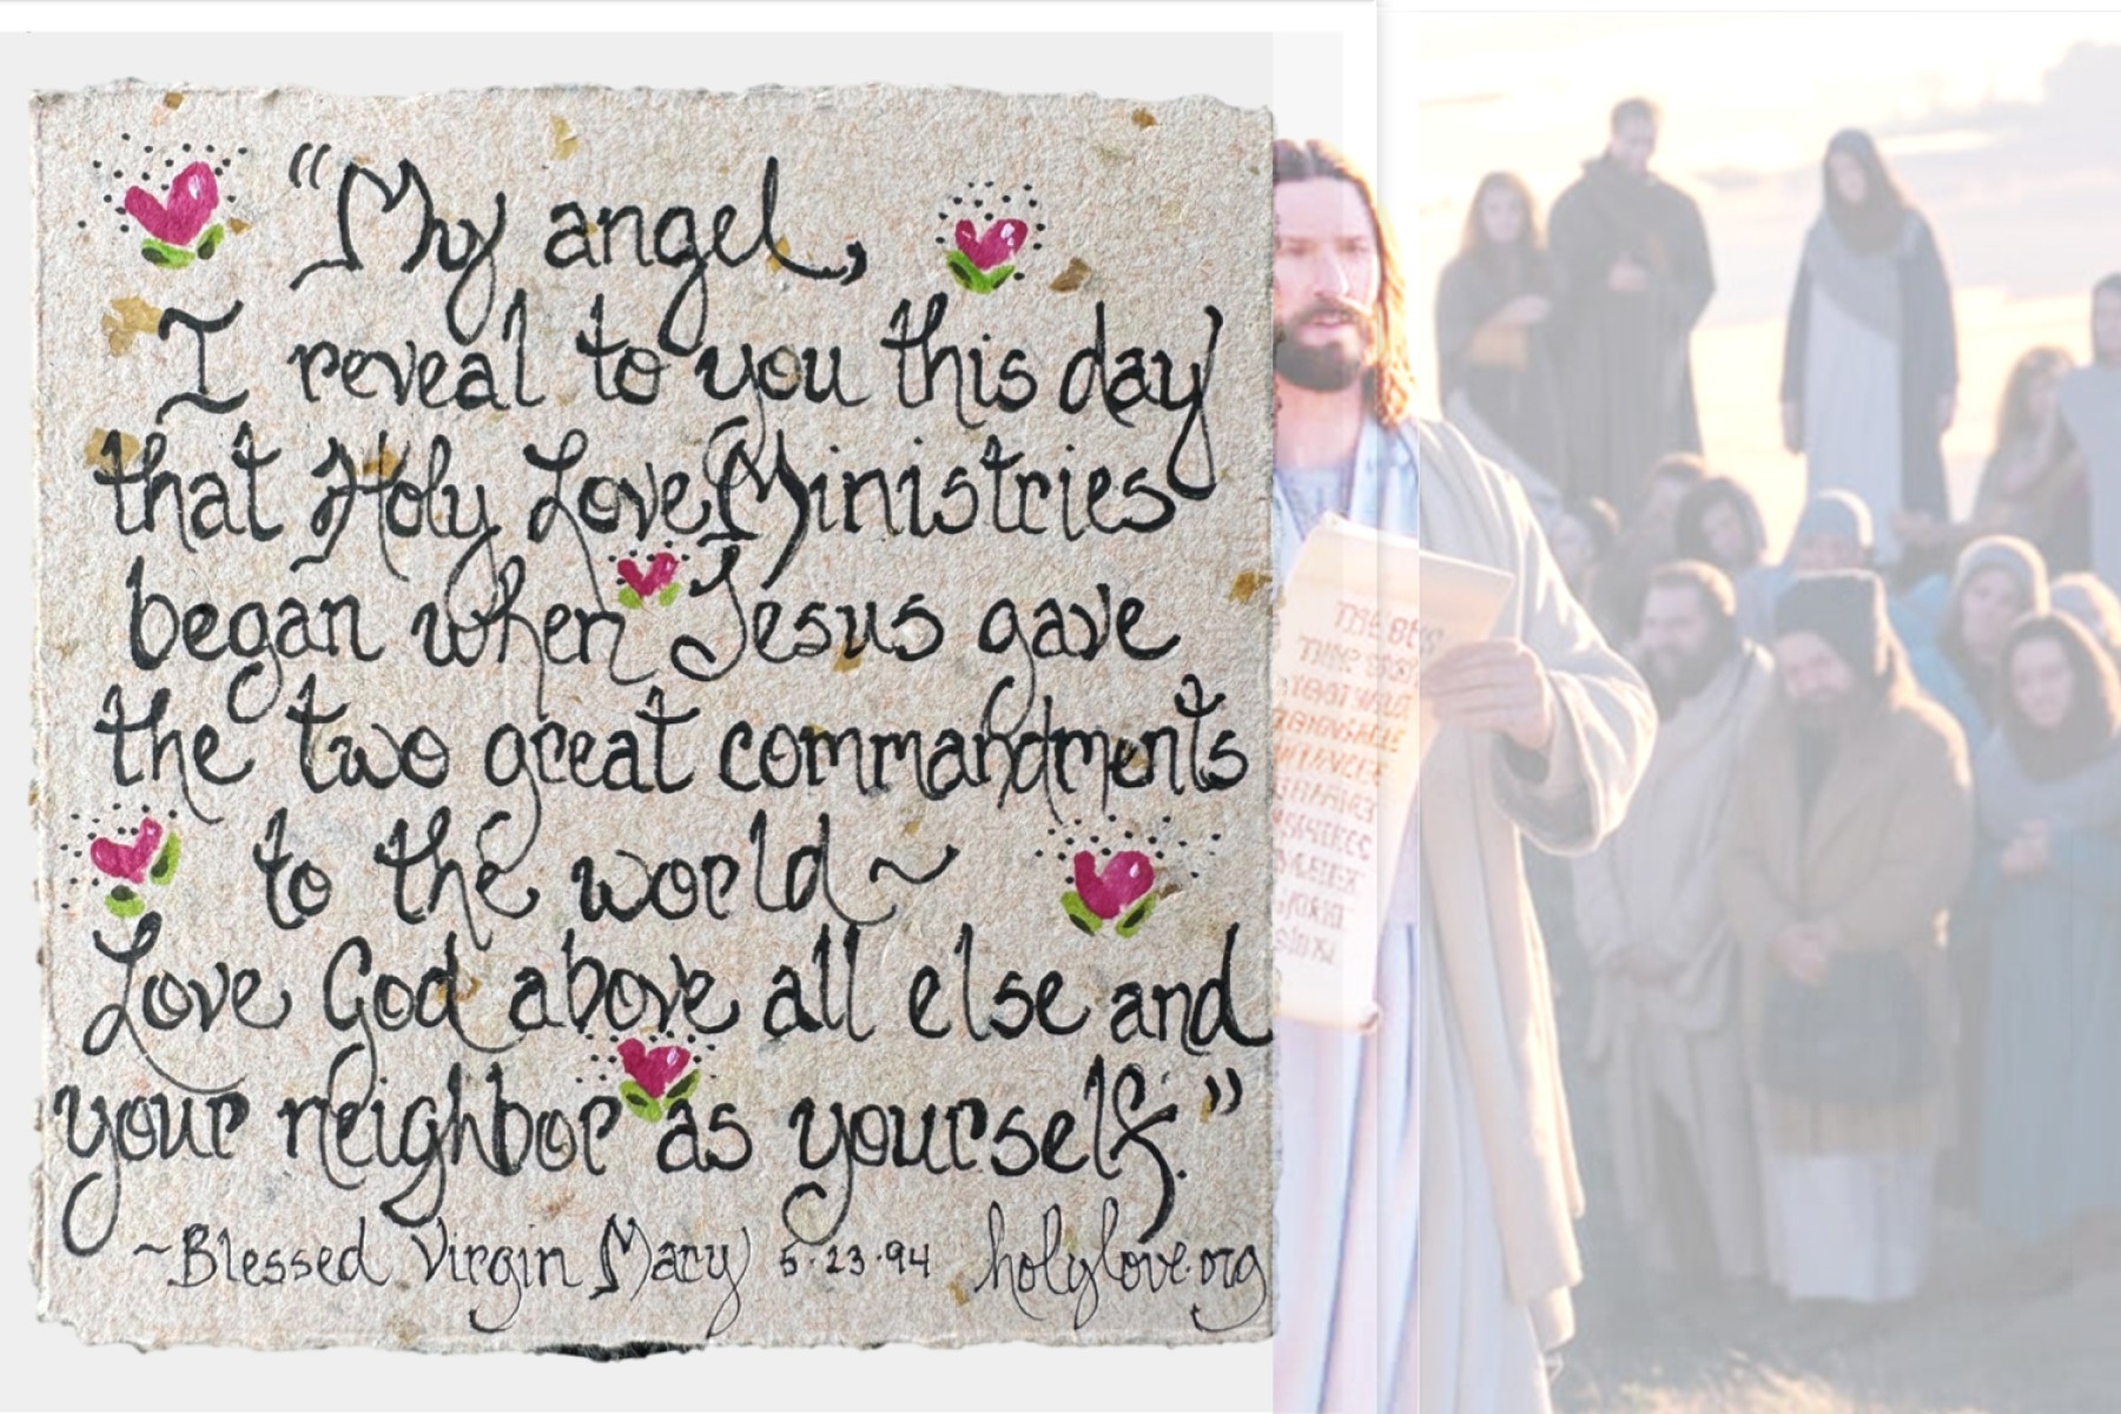 "My angel,
I reveal to you this day
that Holy Love Ministries
began when Jesus gave
the two great commandments
to the world~
Love God above all else and
your neighbor as yourself."
~Blessed Virgin Mary 5·23·94 holylove.org